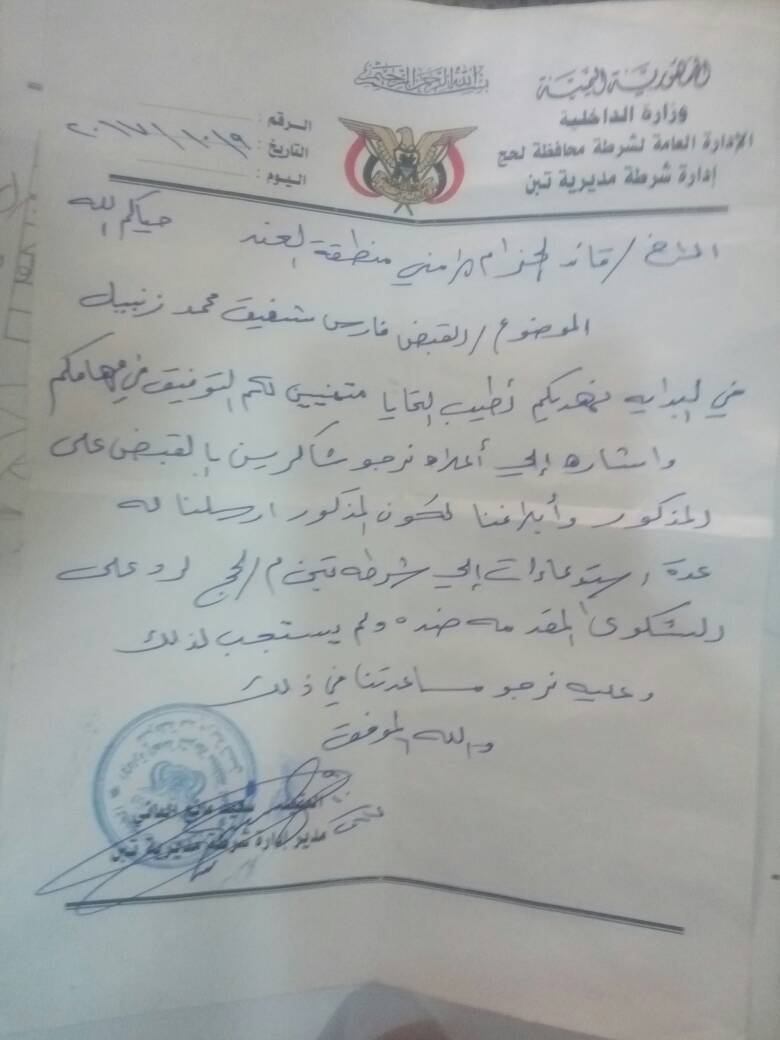 بسم الله الرحمن الرحيم
الجمهورية اليمنية
وزارة الداخلية
الإدارة العامة لشرطة محافظة لحج
إدارة شرطة مديرية تبن
الرقم :
التاريخ : ٢٠١٧/١٠/٩
اليوم :
الأخ / قائد الحزام الامني منطقة العند حياكم الله
الموضوع / القبض فارس شفيق محمد زنبيل
في البدايه نهديكم أطيب التحايا متمنيين لكم التوفيق في مهامكم
واشاره إلى أعلاه نرجو شاكرين بالقبض على
المذكور وأبلاغنا لكون المذكور ارسلنا له
عدة استدعاءات إلى شرطه تبن م/لحج لرد على
الشكوى المقدمه ضده ولم يستجب لذلك
وعليه نرجو مساعدتنا في ذلك
والله الموفق
مدير إدارة شرطة مديرية تبن